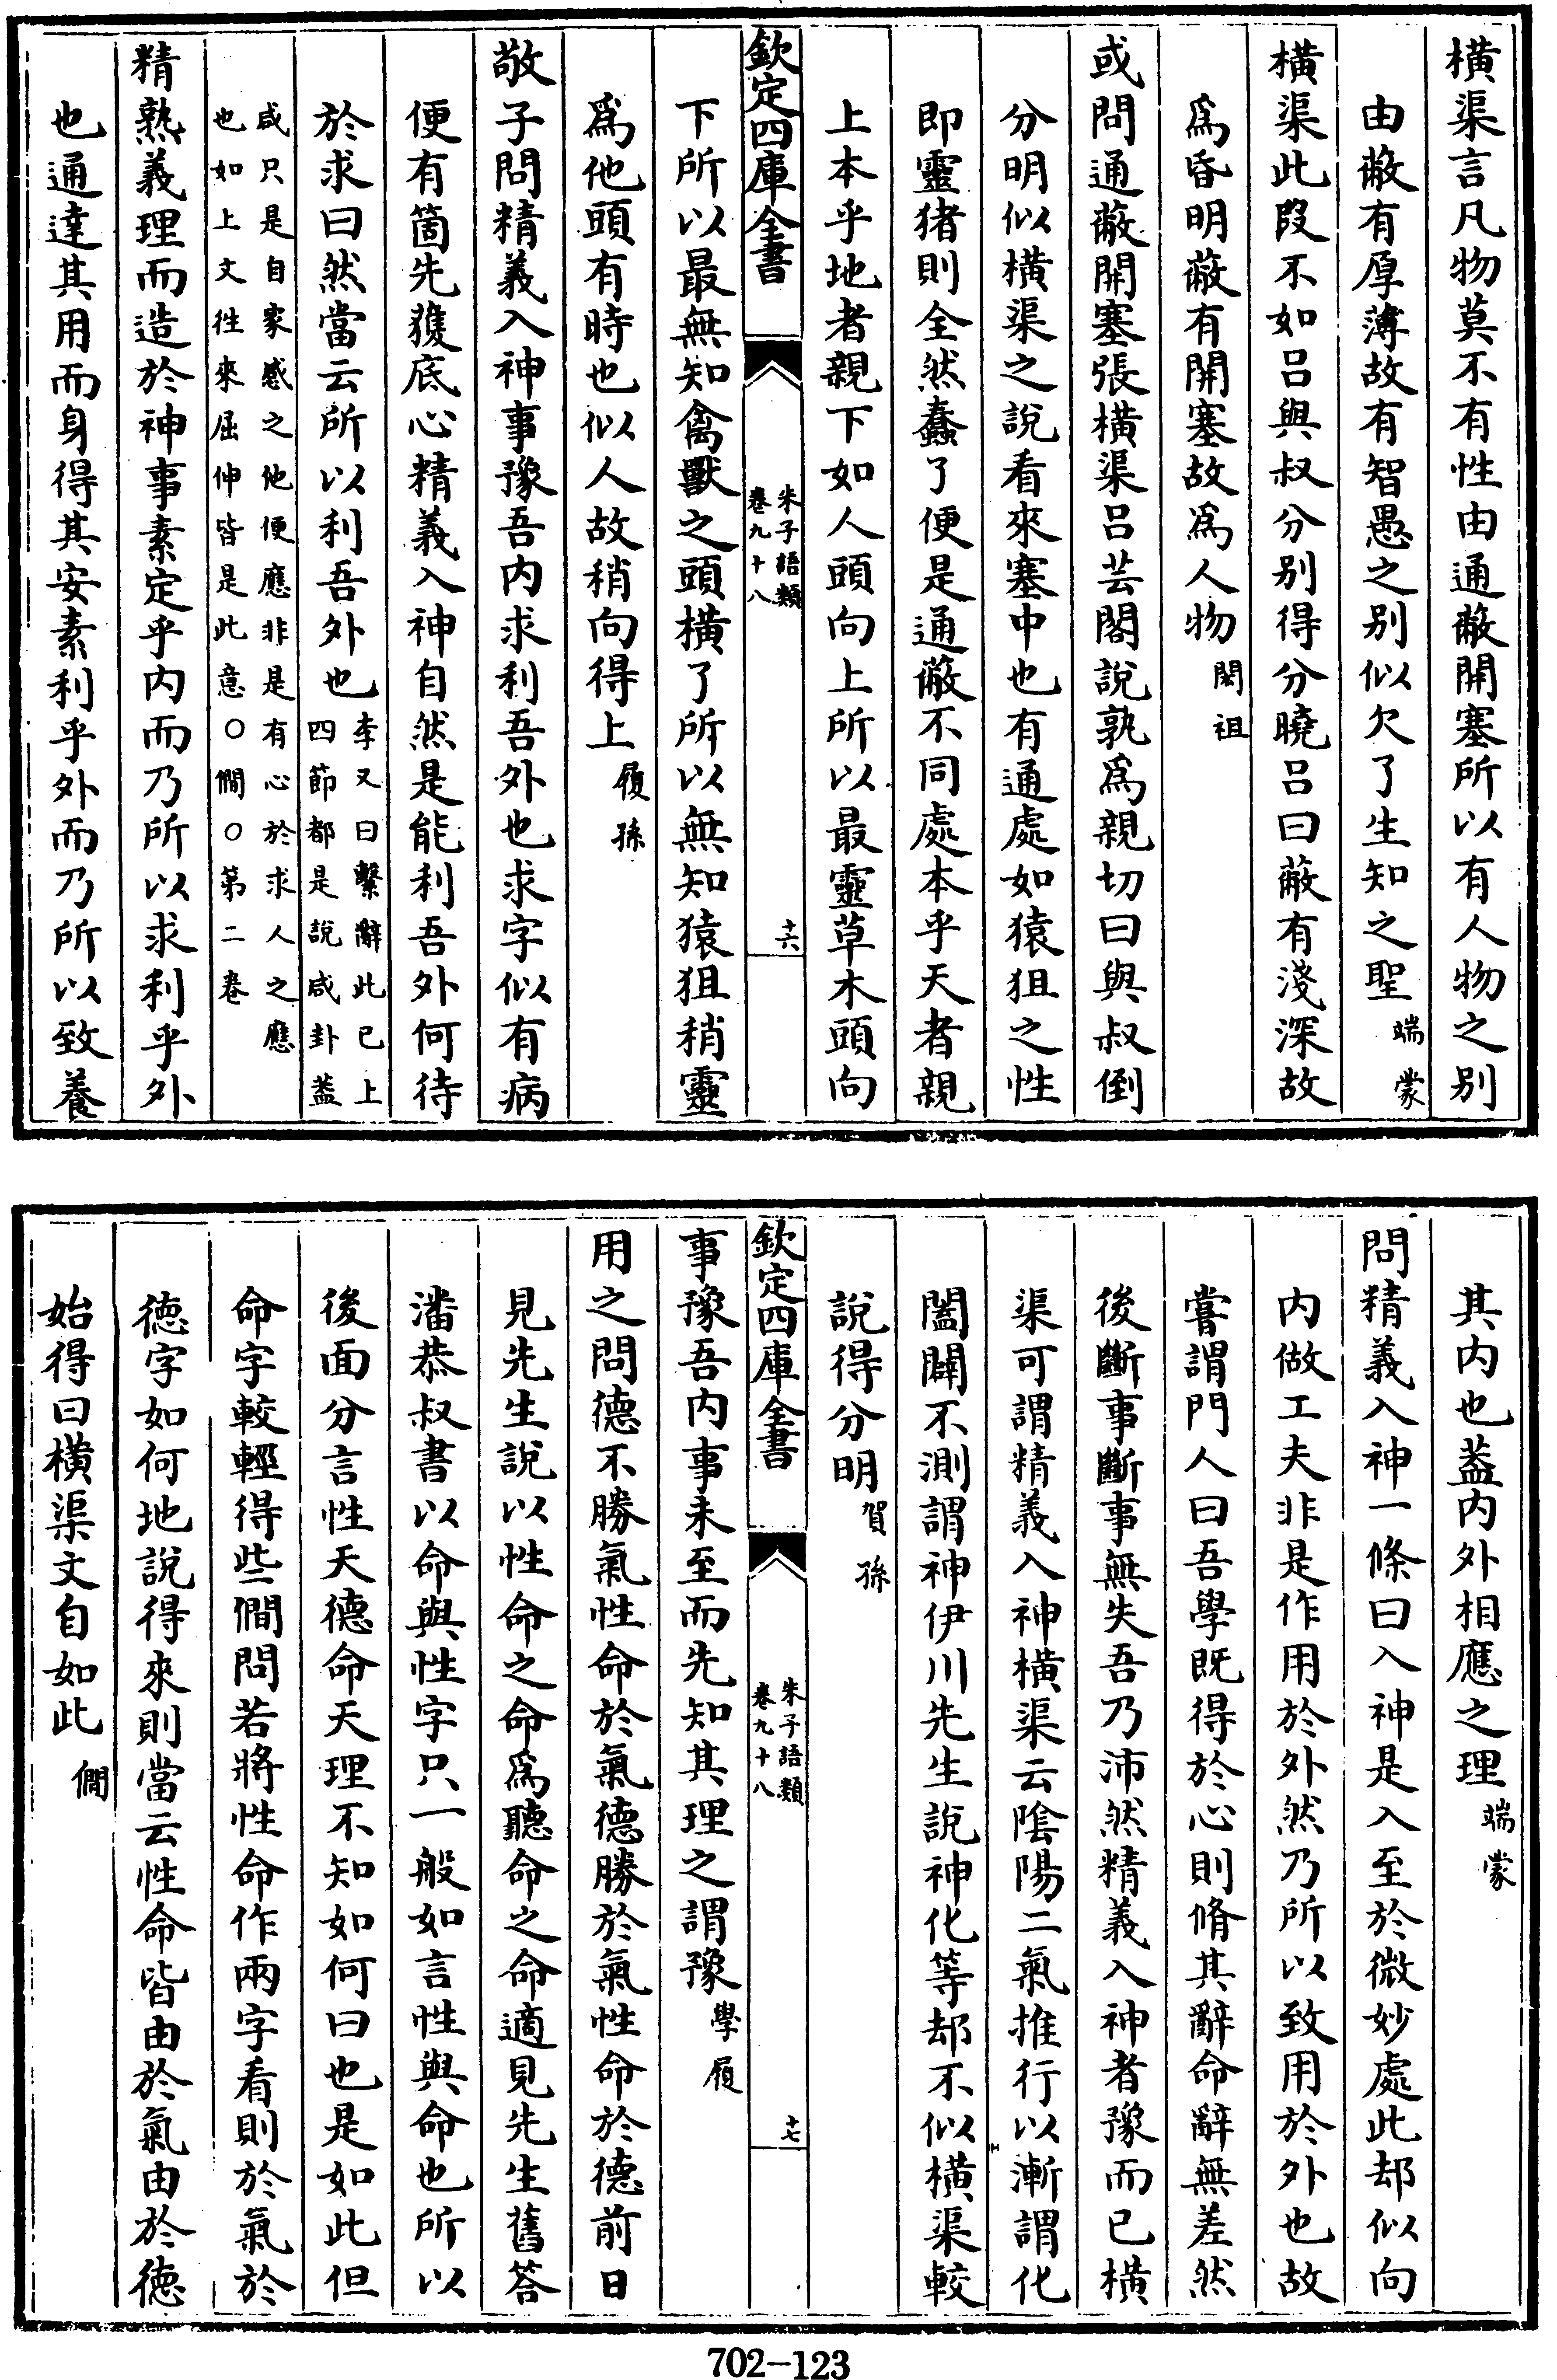 橫渠言凡物莫不有性由通蔽開塞所以有人物之别
由蔽有厚薄故有智愚之别似欠了生知之聖端蒙
橫渠此段不如吕與叔分别得分曉吕曰蔽有淺深故
爲昏明蔽有開塞故爲人物閎祖
或問通蔽開塞張橫渠吕芸閣說孰爲親切曰與叔倒
分明似橫渠之說看來塞中也有通處如猿狙之性
即靈猪則全然蠢了便是通蔽不同處本乎天者親
上本乎地者親下如人頭向上所以最靈草木頭向
欽定四庫全書
朱子語類
卷九十八
十六
下所以最無知禽獸之頭橫了所以無知猿狙稍靈
爲他頭有時也似人故稍向得上履孫
敬子問精義入神事豫吾内求利吾外也求字似有病
便有箇先獲底心精義入神自然是能利吾外何待
於求曰然當云所以利吾外也李又曰繫辭此已上
四節都是說咸卦葢
咸只是自家感之他便應非是有心於求人之應
也如上文徃來屈伸皆是此意○僩○第二卷
精熟義理而造於神事素定乎内而乃所以求利乎外
也通達其用而身得其安素利乎外而乃所以致養
其内也葢内外相應之理端蒙
問精義入神一條曰入神是入至於微妙處此却似向
内做工夫非是作用於外然乃所以致用於外也故
嘗謂門人曰吾學既得於心則脩其辭命辭無差然
後斷事斷事無失吾乃沛然精義入神者豫而已橫
渠可謂精義入神橫渠云陰陽二氣推行以漸謂化
闔闢不測謂神伊川先生說神化等却不似橫渠較
說得分明賀孫
欽定四庫全書
朱子語類
卷九十八
十七
事豫吾内事未至而先知其理之謂豫學履
用之問德不勝氣性命於氣德勝於氣性命於德前日
見先生說以性命之命爲聽命之命適見先生舊答
潘恭叔書以命與性字只一般如言性與命也所以
後面分言性天德命天理不知如何曰也是如此但
命字較輕得些僩問若將性命作兩字看則於氣於
德字如何地說得來則當云性命皆由於氣由於德
始得曰橫渠文自如此僩
702-123